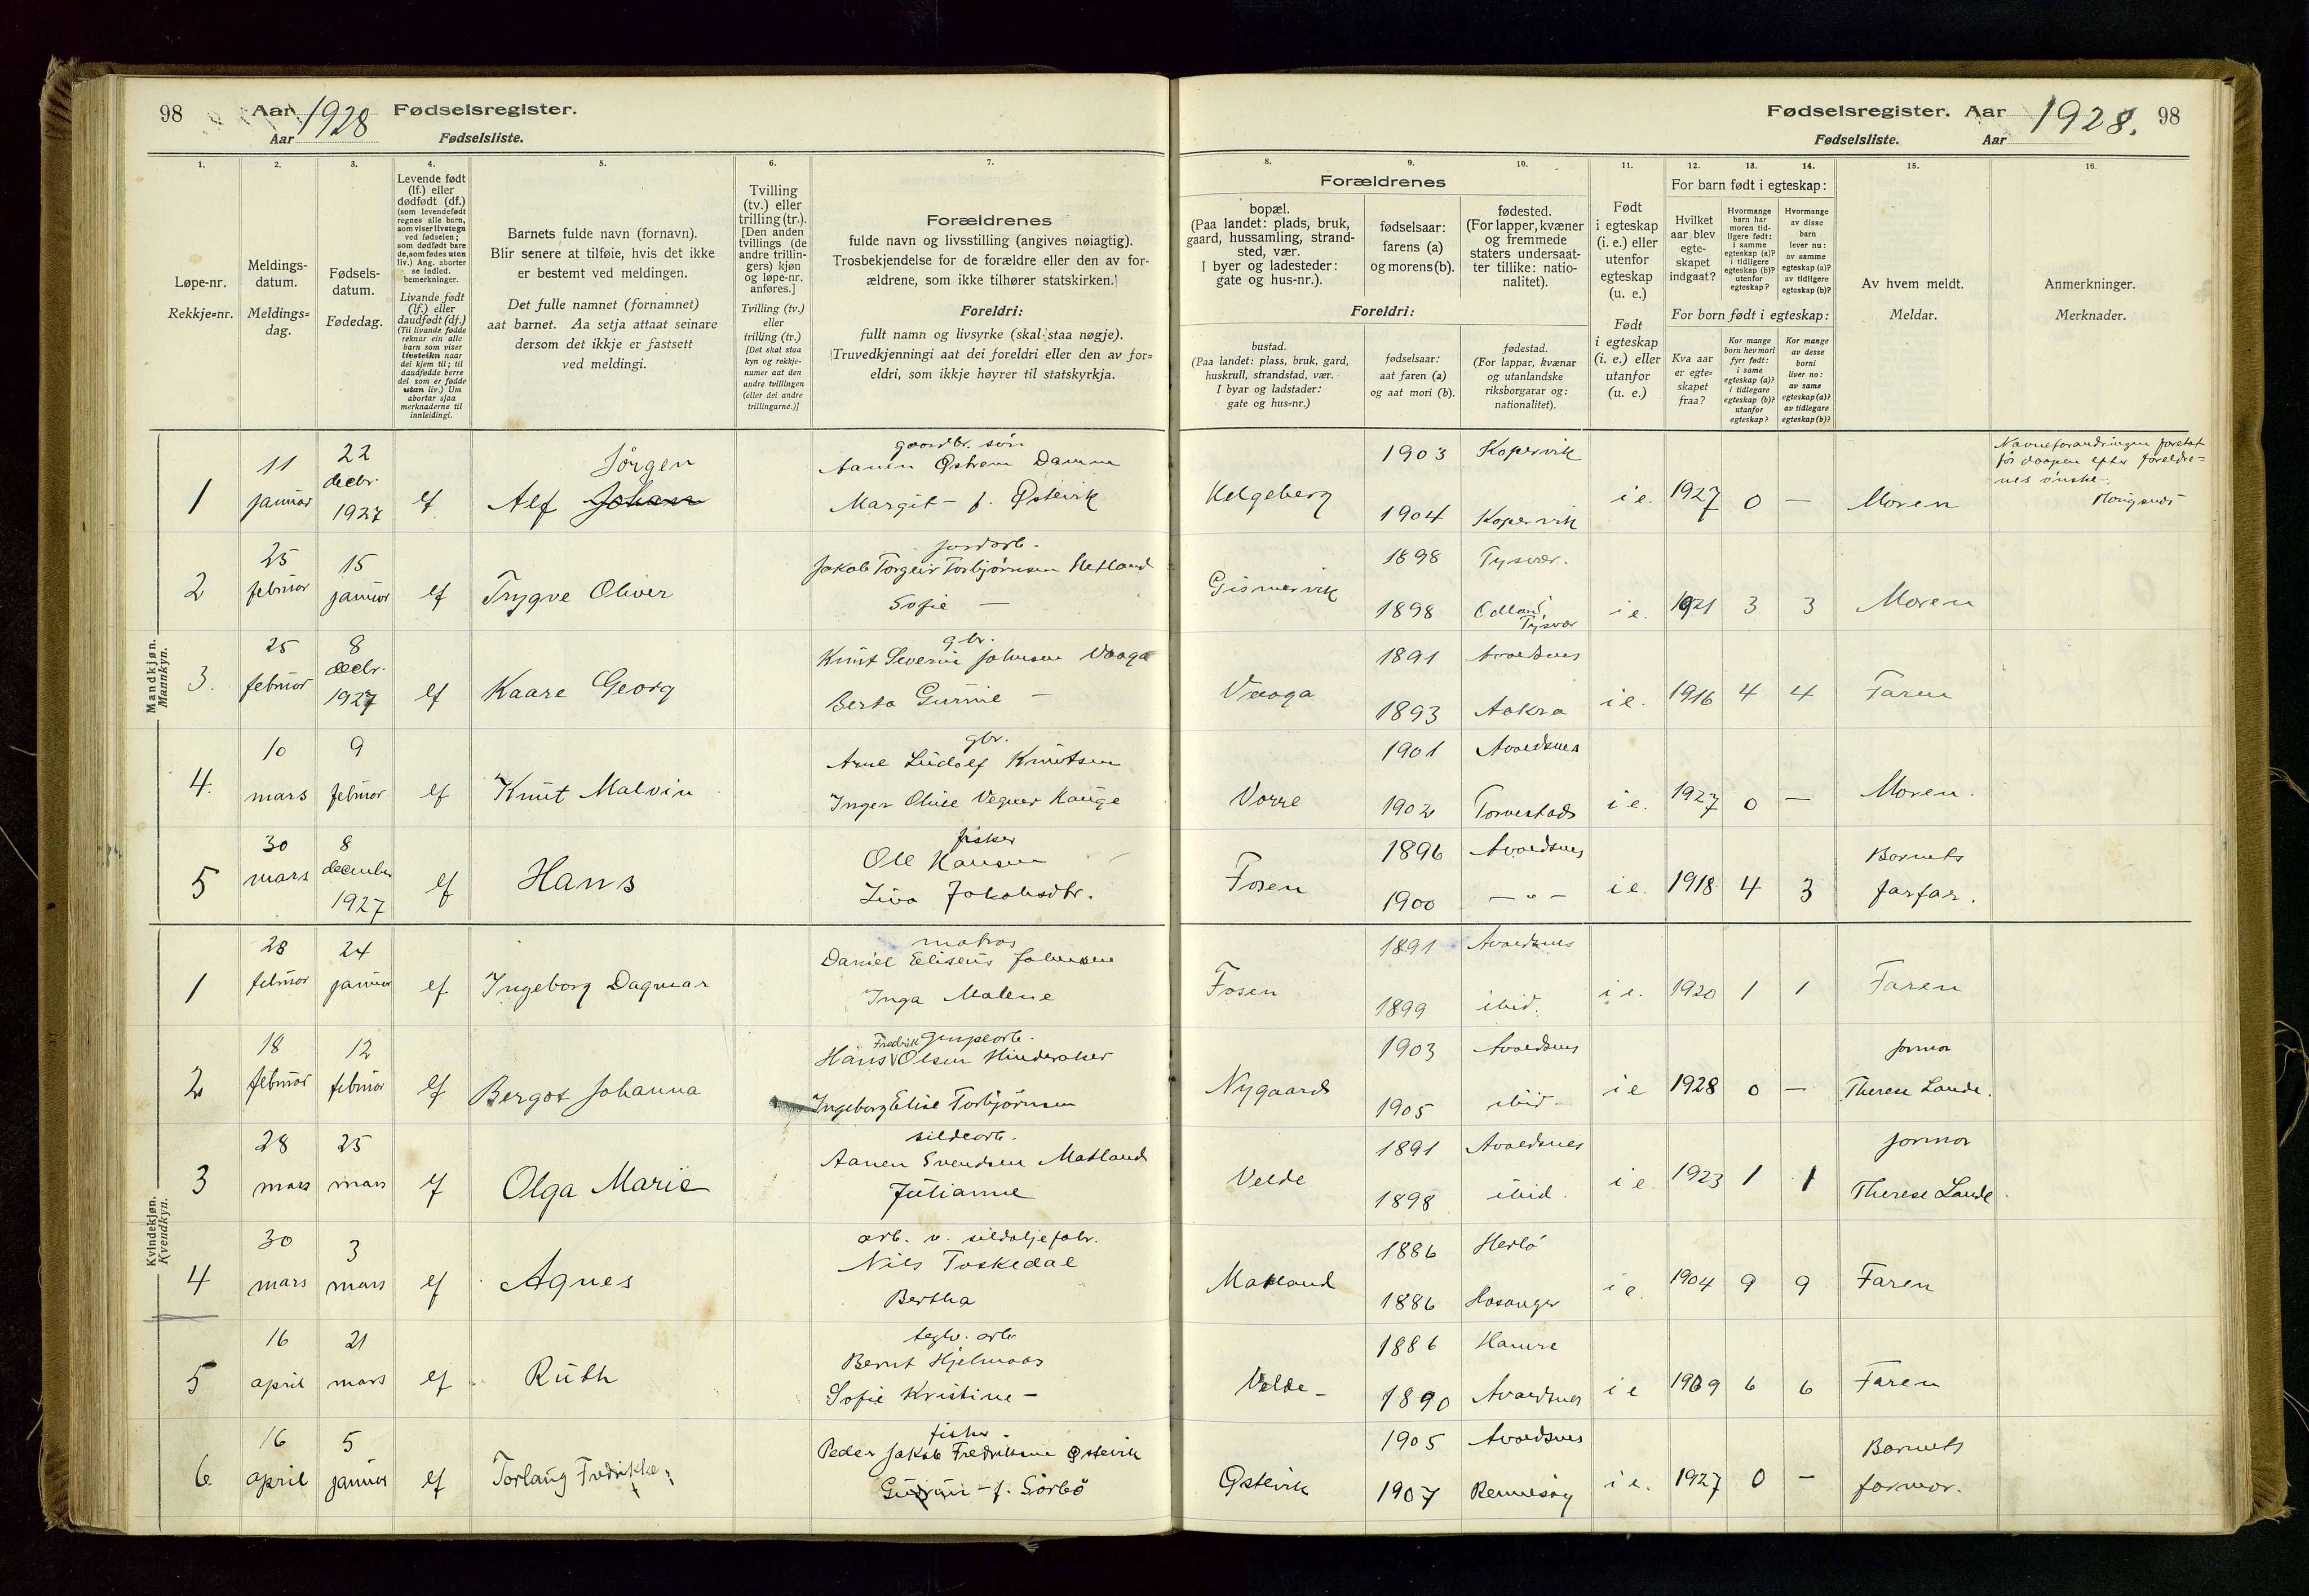 98
Aar 1928 Fødselsregister.
Aar
Fødselsliste.
1.
2.
3.
4.
5.
6.
7.
Løpe-nr.
Rekkje=nr.
Meldings-
datum.
Meldings=
dag.
Fødsels-
datum.
Fødedag.
Levende født
(lf.) eller
dødfødt (df.)
(som levendefødt
regnes alle barn,
som viser livstegn
ved fødselen;
som dødfødt bare
de, som fødes uten
liv.) Ang. aborter
se indled.
bemerkninger.
Livande født
(lf.) eller
daudfødt (df.)
(Til livande fødde
reknar ein alle
barn som viser
livsteikn naar
dei kjem til; til
daudfødde berre
dei som er fødde
utan liv.) Um
abortar sjaa
merknaderne til
innleidingi.
Barnets fulde navn (fornavn).
Blir senere at tilføie, hvis det ikke
er bestemt ved meldingen.
Det fulle namnet (fornamnet)
aat barnet. Aa setja attaat seinare
dersom det ikkje er fastsett
ved meldingi.
Tvilling
(tv.) eller
trilling (tr.).
[Den anden
tvillings (de
andre trillin-
gers) kjøn
og løpe-nr.
anføres.]
Tvilling (tv.)
eller
trilling (tr.)
[Det skal staa
kyn og rekkje-
numer aat den
andre tvillingen
(eller dei andre
trillingarne.)]
Forældrenes
fulde navn og livsstilling (angives nøiagtig).
Trosbekjendelse for de forældre eller den av for-
ældrene, som ikke tilhører statskirken.
Foreldri:
fullt namn og livsyrke (skal staa nøgje).
Truvedkjenningi aat dei foreldri eller den av for=
eldri, som ikkje høyrer til statskyrkja.
Mandkjøn.
Mannkyn.
1 11 januar 22 decbr. 1927 lf Alf Johan Jørgen
gaardbr. søn
Aanen Østrem Damm
Margit - f. Østevik
2 25 februar 15 januar lf Trygve Oliver
jordarb.
Jakob Torgeir Torbjørnsen Hetland
Sofie —
3. 25 februar 8 decbr. 1927 lf Kaare Georg
gbr.
Knut Severin Johnsen Vaaga
Berta Gurine —
4. 10 mars 9 februar lf Knut Malvin
gbr.
Arne Ludolf Knutsen
Inger Oline Vegner Hauge
5 30 mars 8 december 1927 lf Hans
fisker
Ole Hansen
Liva Jakobsdtr.
Kvindekjøn.
Kvendkyn.
1 28 februar 24 januar lf Ingeborg Dagmar
matros
Daniel Eliseus Johnsen
Inga Malene
2 18 februar 12 februar lf Bergot Johanna
grupearb.
Hans Fredrik Olsen Hinderaker
Ingeborg Elise Torbjørnsen
3 28 mars 25 mars lf Olga Marie
sildearb.
Aanen Svendsen Matland
Julianne
4 30 mars 3 mars lf Agnes
arb. v. sildoljefabr.
Nils Toskedal
Bertha
5 16 april 21 mars lf Ruth
teglv. arb
Bernt Hjelmaas
Sofie Kristine -
6. 16 april 5 januar lf Torlaug Fredrikke
fisker.
Peder Jakob Fredriksen Østevik
Gudrun - f. Sørbø
Fødselsregister. Aar 1928. 98
Fødselsliste.
Aar
8.
9.
10.
11.
12.
13.
14.
15.
16.
Forældrenes
bopæl.
(Paa landet: plads, bruk,
gaard, hussamling, strand-
sted, vær.
I byer og ladesteder:
gate og hus-nr.).
fødselsaar:
farens (a)
og morens (b).
fødested.
(For lapper, kvæner
og fremmede
staters undersaat-
ter tillike: natio-
nalitet).
Foreldri:
bustad.
(Paa landet: plass, bruk, gard,
huskrull, strandstad, vær.
I byar og ladstader:
gate og hus=nr.)
fødselsaar:
aat faren (a)
og aat mori (b).
fødestad.
(For lappar, kvænar
og utanlandske
riksborgarar og:
nationalitet).
Født
i egteskap
(i. e.) eller
utenfor
egteskap
(u. e.)
Født
i egteskap
(i. e.) eller
utanfor
(u. e.)
For barn født i egteskap:
Hvilket
aar blev
egte-
skapet
indgaat?
Hvormange
barn har
moren tid-
ligere født:
i samme
egteskap (a)?
i tidligere
egteskap (b)?
utenfor
egteskap?
Hvormange
av disse
barn
lever nu:
av samme
egteskap (a)?
av tidligere
egteskap (b)?
For born født i egteskap:
Kva aar
er egte=
skapet
fraa?
Kor mange
born hev mori
fyrr født:
i same
egteskap (a)?
i tidlegare
egteskap (b)?
utanfor
egteskap?
Kor mange
av desse
borni
liver no:
av same
egteskap (a)?
av tidlegare
egteskap (b)?
Av hvem meldt.
Meldar.
Anmerkninger.
Merknader.
Helgeberg 1903 Kopervik
1904 Kopervik i e. 1927 0 — Moren
Navneforandringen foretat
før daapen efter foreldre=
nes ønske.
Gismervik 1898 Tysvær.
1898 Tysvær i e. 1921 3 3 Moren
Vaaga 1891 Avaldsnes
1893 Aakra i e. 1916 4 4 Faren
Vorre 1901 Avaldsnes
1902 Torvestad i e. 1927 0 — Moren.
Fosen 1896 Avaldsnes
1900 — " — i e. 1918 4 3 Barnets
farfar.
Fosen 1891 Avaldsnes
1899 ibid. i e. 1920 1 1 Faren
Nygaard 1903 Avaldsnes
1905 ibid. i e 1928 0 — jormor
Therese Lande.
Velde 1891 Avaldsnes
1898 ibid. i e 1923 1 1 jormor
Therese Lande
Matland 1886 Herlø
1886 Hosanger i e. 1904 9 9 Faren
Velde - 1886 Hamre
1890 Avaldsnes i e 1909 6 6 Faren
Østevik 1905 Avaldsnes
1907 Rennesøy i e. 1927 0 — Barnets
farmor.